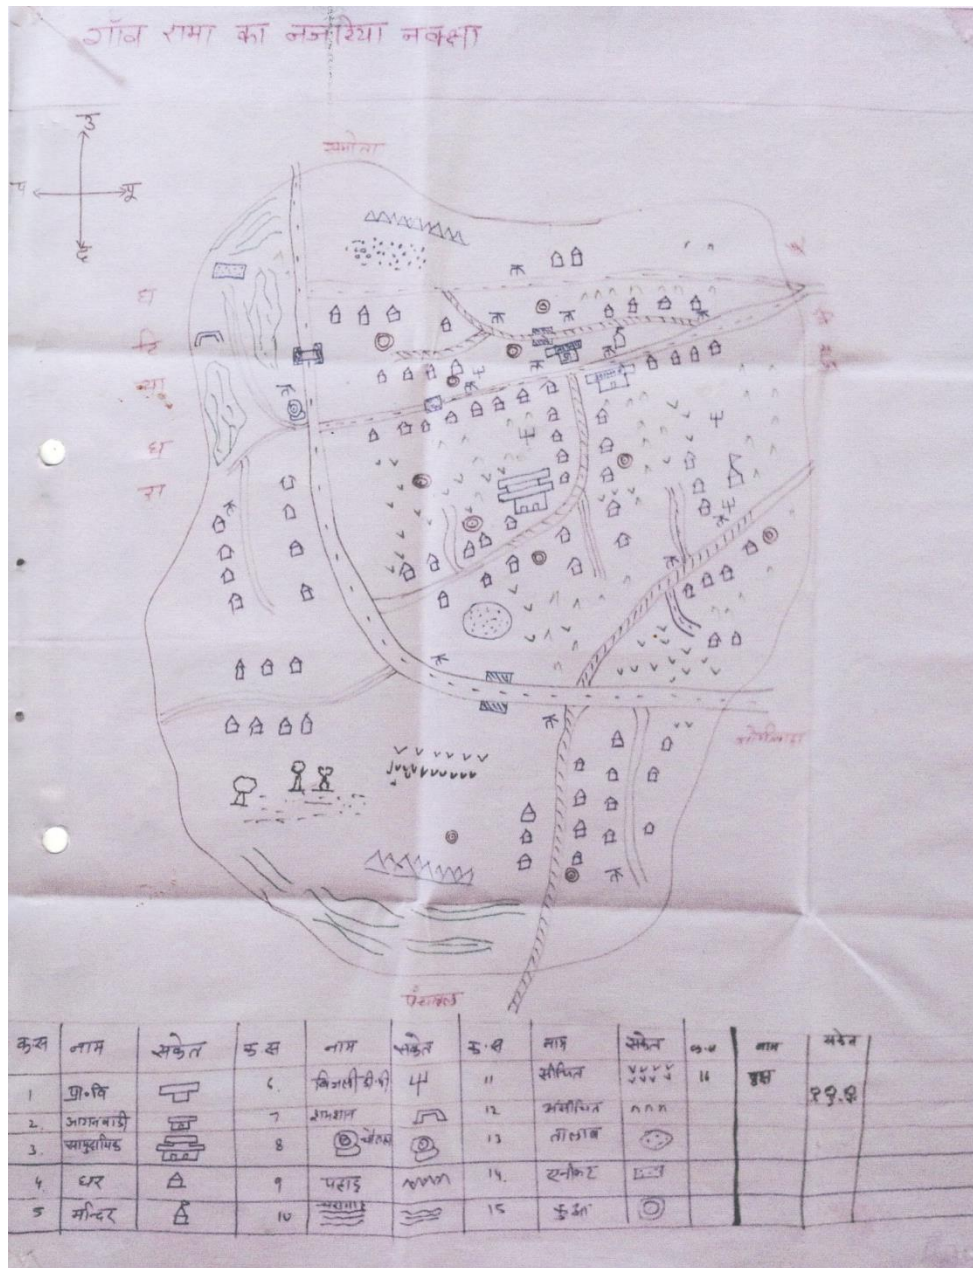 गाँव रामा का नजरिया नक्सा
उ
प पू
द
घ
टि
या
घ
रा
क्र.स नाम संकेत क्र.स नाम संकेत क्र.स नाम संकेत क्र.स नाम संकेत
1 प्रा.वि 6. बिजली डी.पी 11 सींचित 16 वृक्ष
2. आगनवाडी 7 शमशान 12 असींचित
3. सामुदायिक 8 13 तालाब
4 घर 9 पहाड़ 14. एनीकट
5 मन्दिर 10 15 कुआ